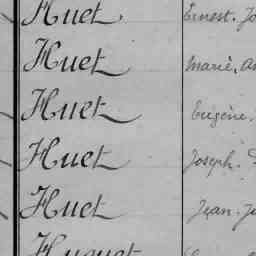 Huet Ernest. Jo
Huet Marie. An
Huet Eugène.
Huet Joseph.
Huet Jean. Jo
Huguet